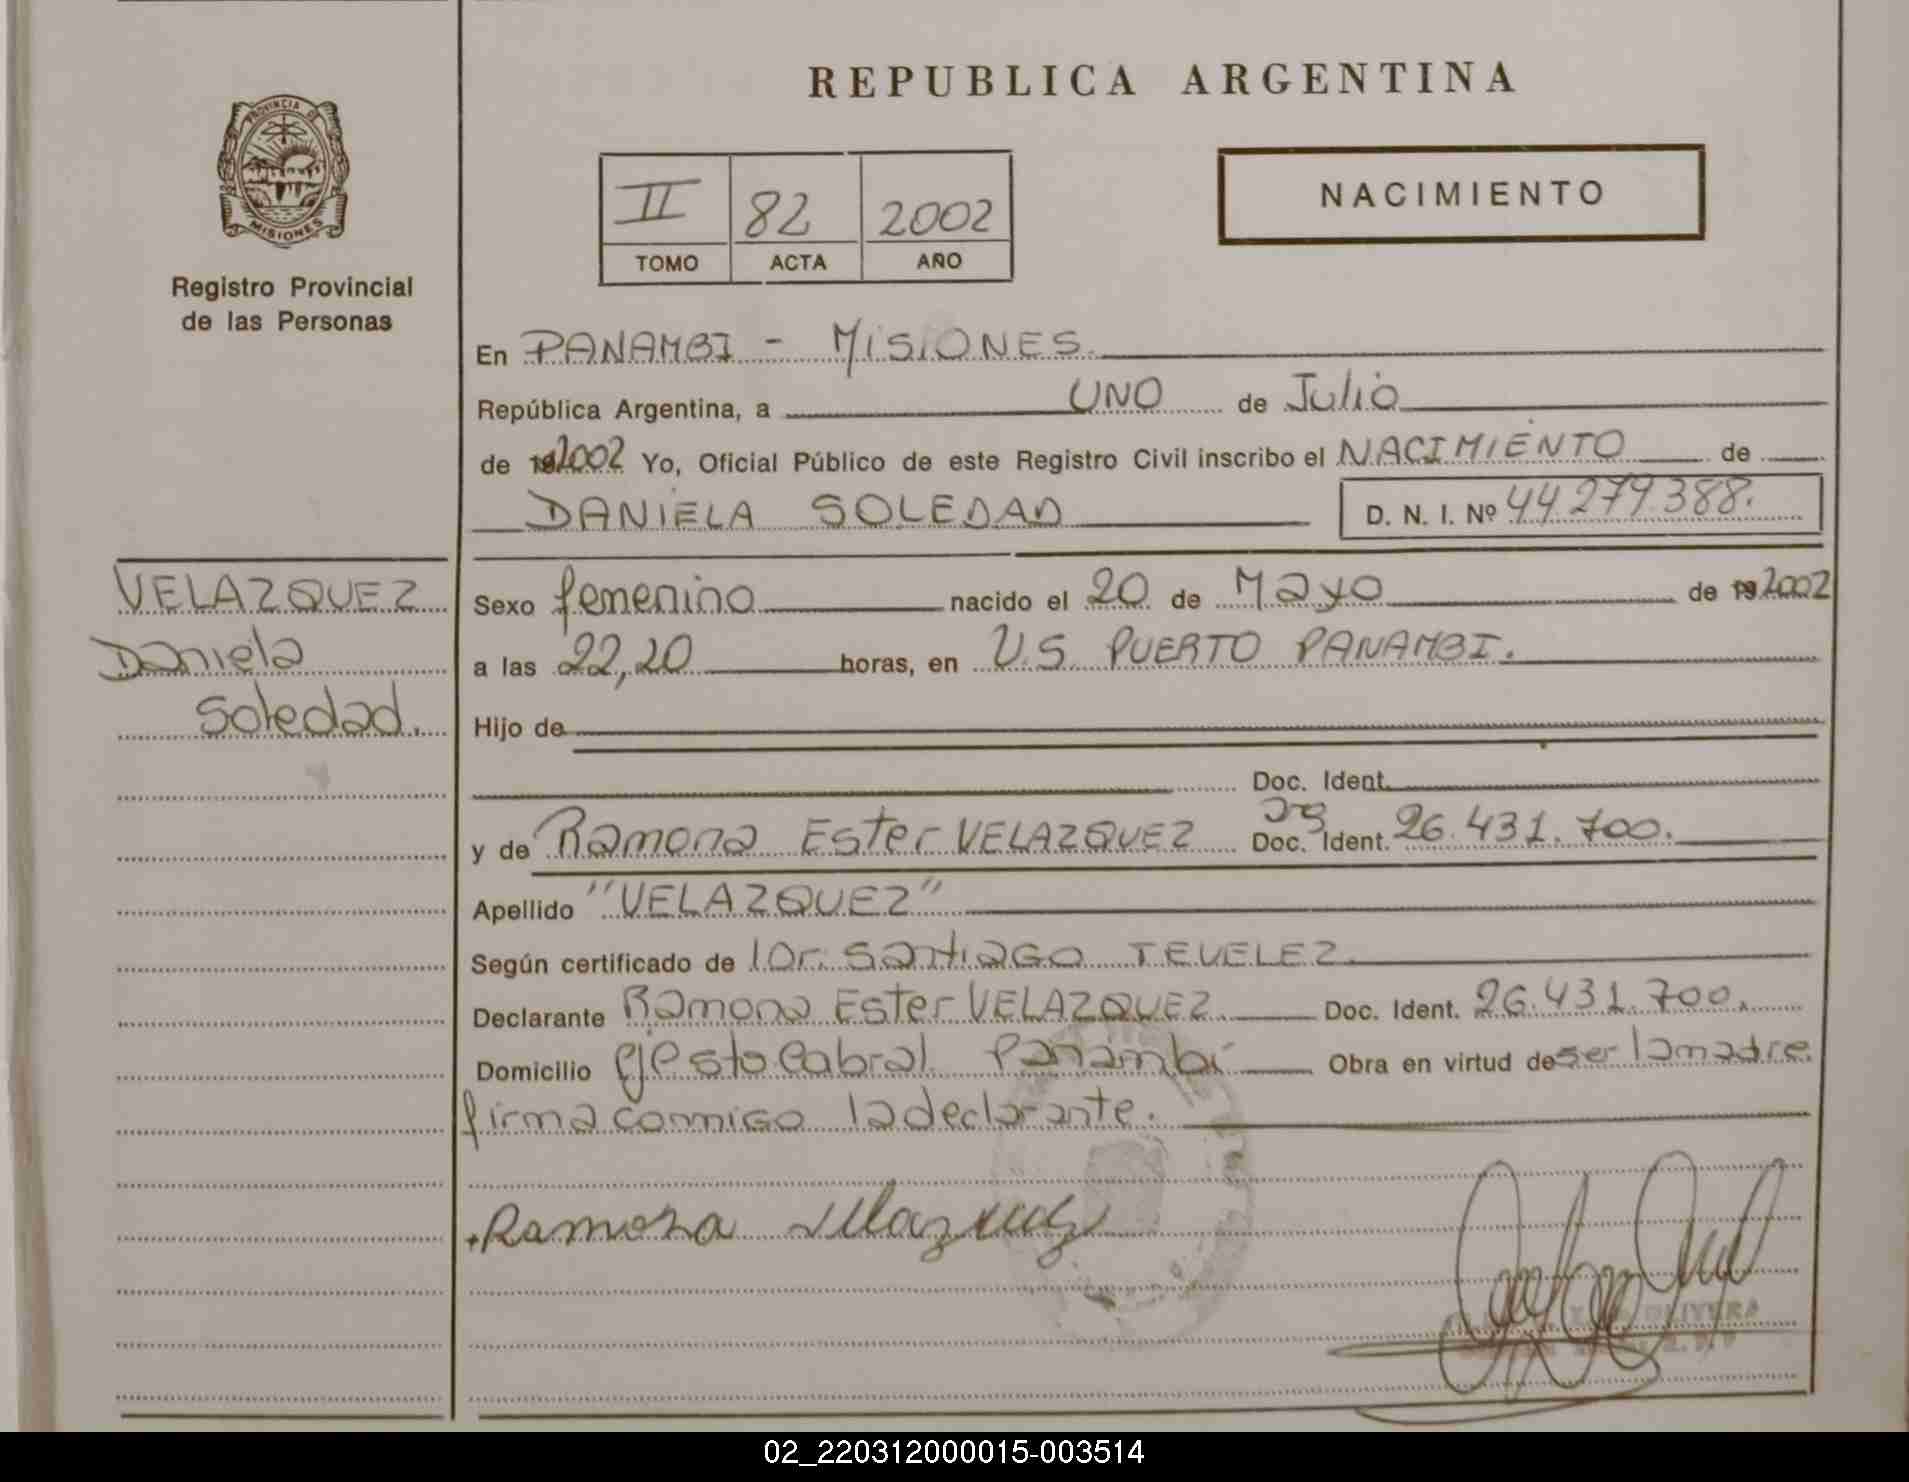 REPUBLICA ARGENTINA
PROVINCIA DE
MISIONES
Registro Provincial
de las Personas
II 82 2002
TOMO ACTA AÑO
NACIMIENTO
En PANAMBI - MISIONES.
República Argentina, a UNO de Julio
de 192002 Yo, Oficial Público de este Registro Civil inscribo el NACIMIENTO de
DANIELA SOLEDAD D. N. I. Nº 44.279.388.
VELAZQUEZ
Daniela
Soledad.
Sexo femenino nacido el 20 de Mayo de 192002
a las 22,20 horas, en U.S. PUERTO PANAMBI.
Hijo de
Doc. Ident.
y de Ramona Ester VELAZQUEZ Doc. Ident. 26.431.700.
Apellido "VELAZQUEZ"
Según certificado de Dr. SANTIAGO TEVELEZ.
Declarante Ramona Ester VELAZQUEZ Doc. Ident. 26.431.700.
Domicilio Cabral Panambí Obra en virtud de ser la madre.
firma conmigo la declarante.
Ramona Velazquez
OLIVERA
02_220312000015-003514